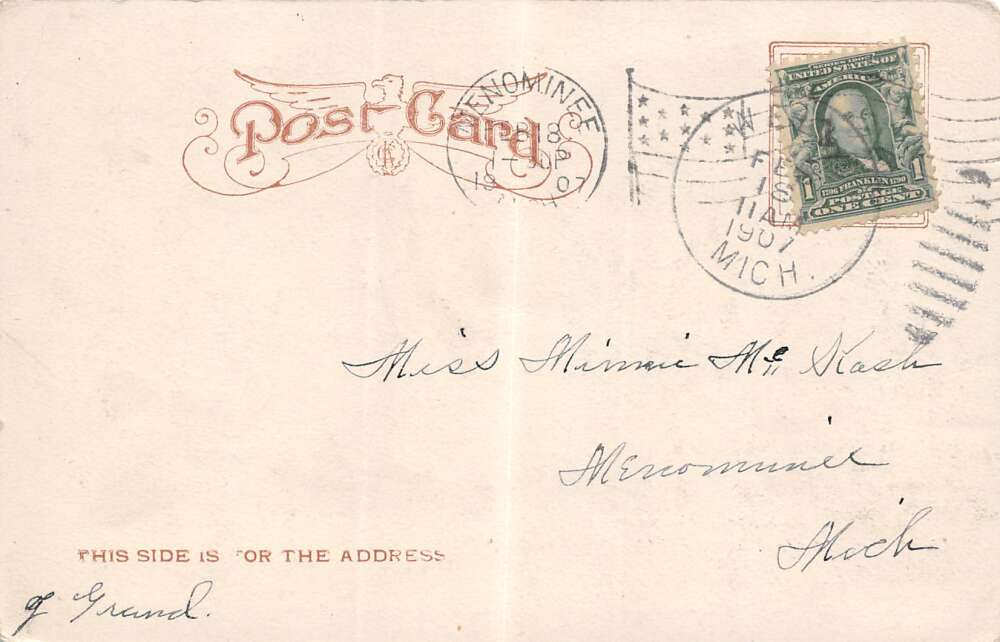 Post Card
MENOMINEE
8
1907
MICH.
11 AM
1907
SERIES 1902
UNITED STATES OF
AMERICA
1706 FRANKLIN 1790
POSTAGE
1 ONE CENT 1
Miss Minnie Mc Kash
Menominee
Mich
THIS SIDE IS FOR THE ADDRESS
of Grand.